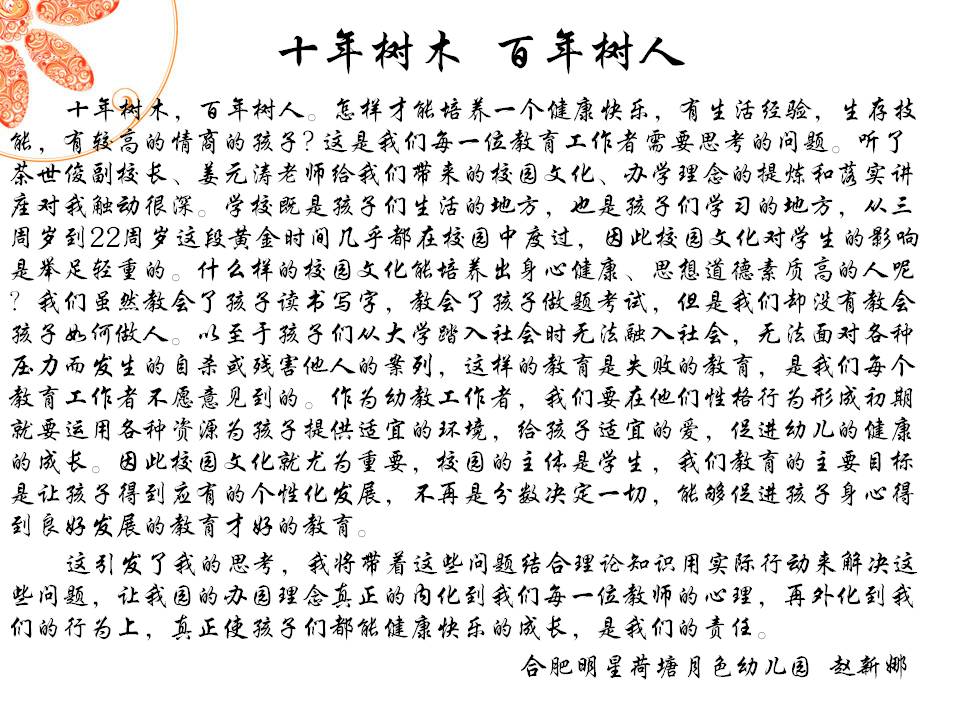 十年树木 百年树人
十年树木，百年树人。怎样才能培养一个健康快乐，有生活经验，生存技
能，有较高的情商的孩子？这是我们每一位教育工作者需要思考的问题。听了
茶世俊副校长、姜元涛老师给我们带来的校园文化、办学理念的提炼和落实讲
座对我触动很深。学校既是孩子们生活的地方，也是孩子们学习的地方，从三
周岁到22周岁这段黄金时间几乎都在校园中度过，因此校园文化对学生的影响
是举足轻重的。什么样的校园文化能培养出身心健康、思想道德素质高的人呢
？我们虽然教会了孩子读书写字，教会了孩子做题考试，但是我们却没有教会
孩子如何做人。以至于孩子们从大学踏入社会时无法融入社会，无法面对各种
压力而发生的自杀或残害他人的案列，这样的教育是失败的教育，是我们每个
教育工作者不愿意见到的。作为幼教工作者，我们要在他们性格行为形成初期
就要运用各种资源为孩子提供适宜的环境，给孩子适宜的爱，促进幼儿的健康
的成长。因此校园文化就尤为重要，校园的主体是学生，我们教育的主要目标
是让孩子得到应有的个性化发展，不再是分数决定一切，能够促进孩子身心得
到良好发展的教育才好的教育。
这引发了我的思考，我将带着这些问题结合理论知识用实际行动来解决这
些问题，让我园的办园理念真正的内化到我们每一位教师的心理，再外化到我
们的行为上，真正使孩子们都能健康快乐的成长，是我们的责任。
合肥明星荷塘月色幼儿园 赵新娜